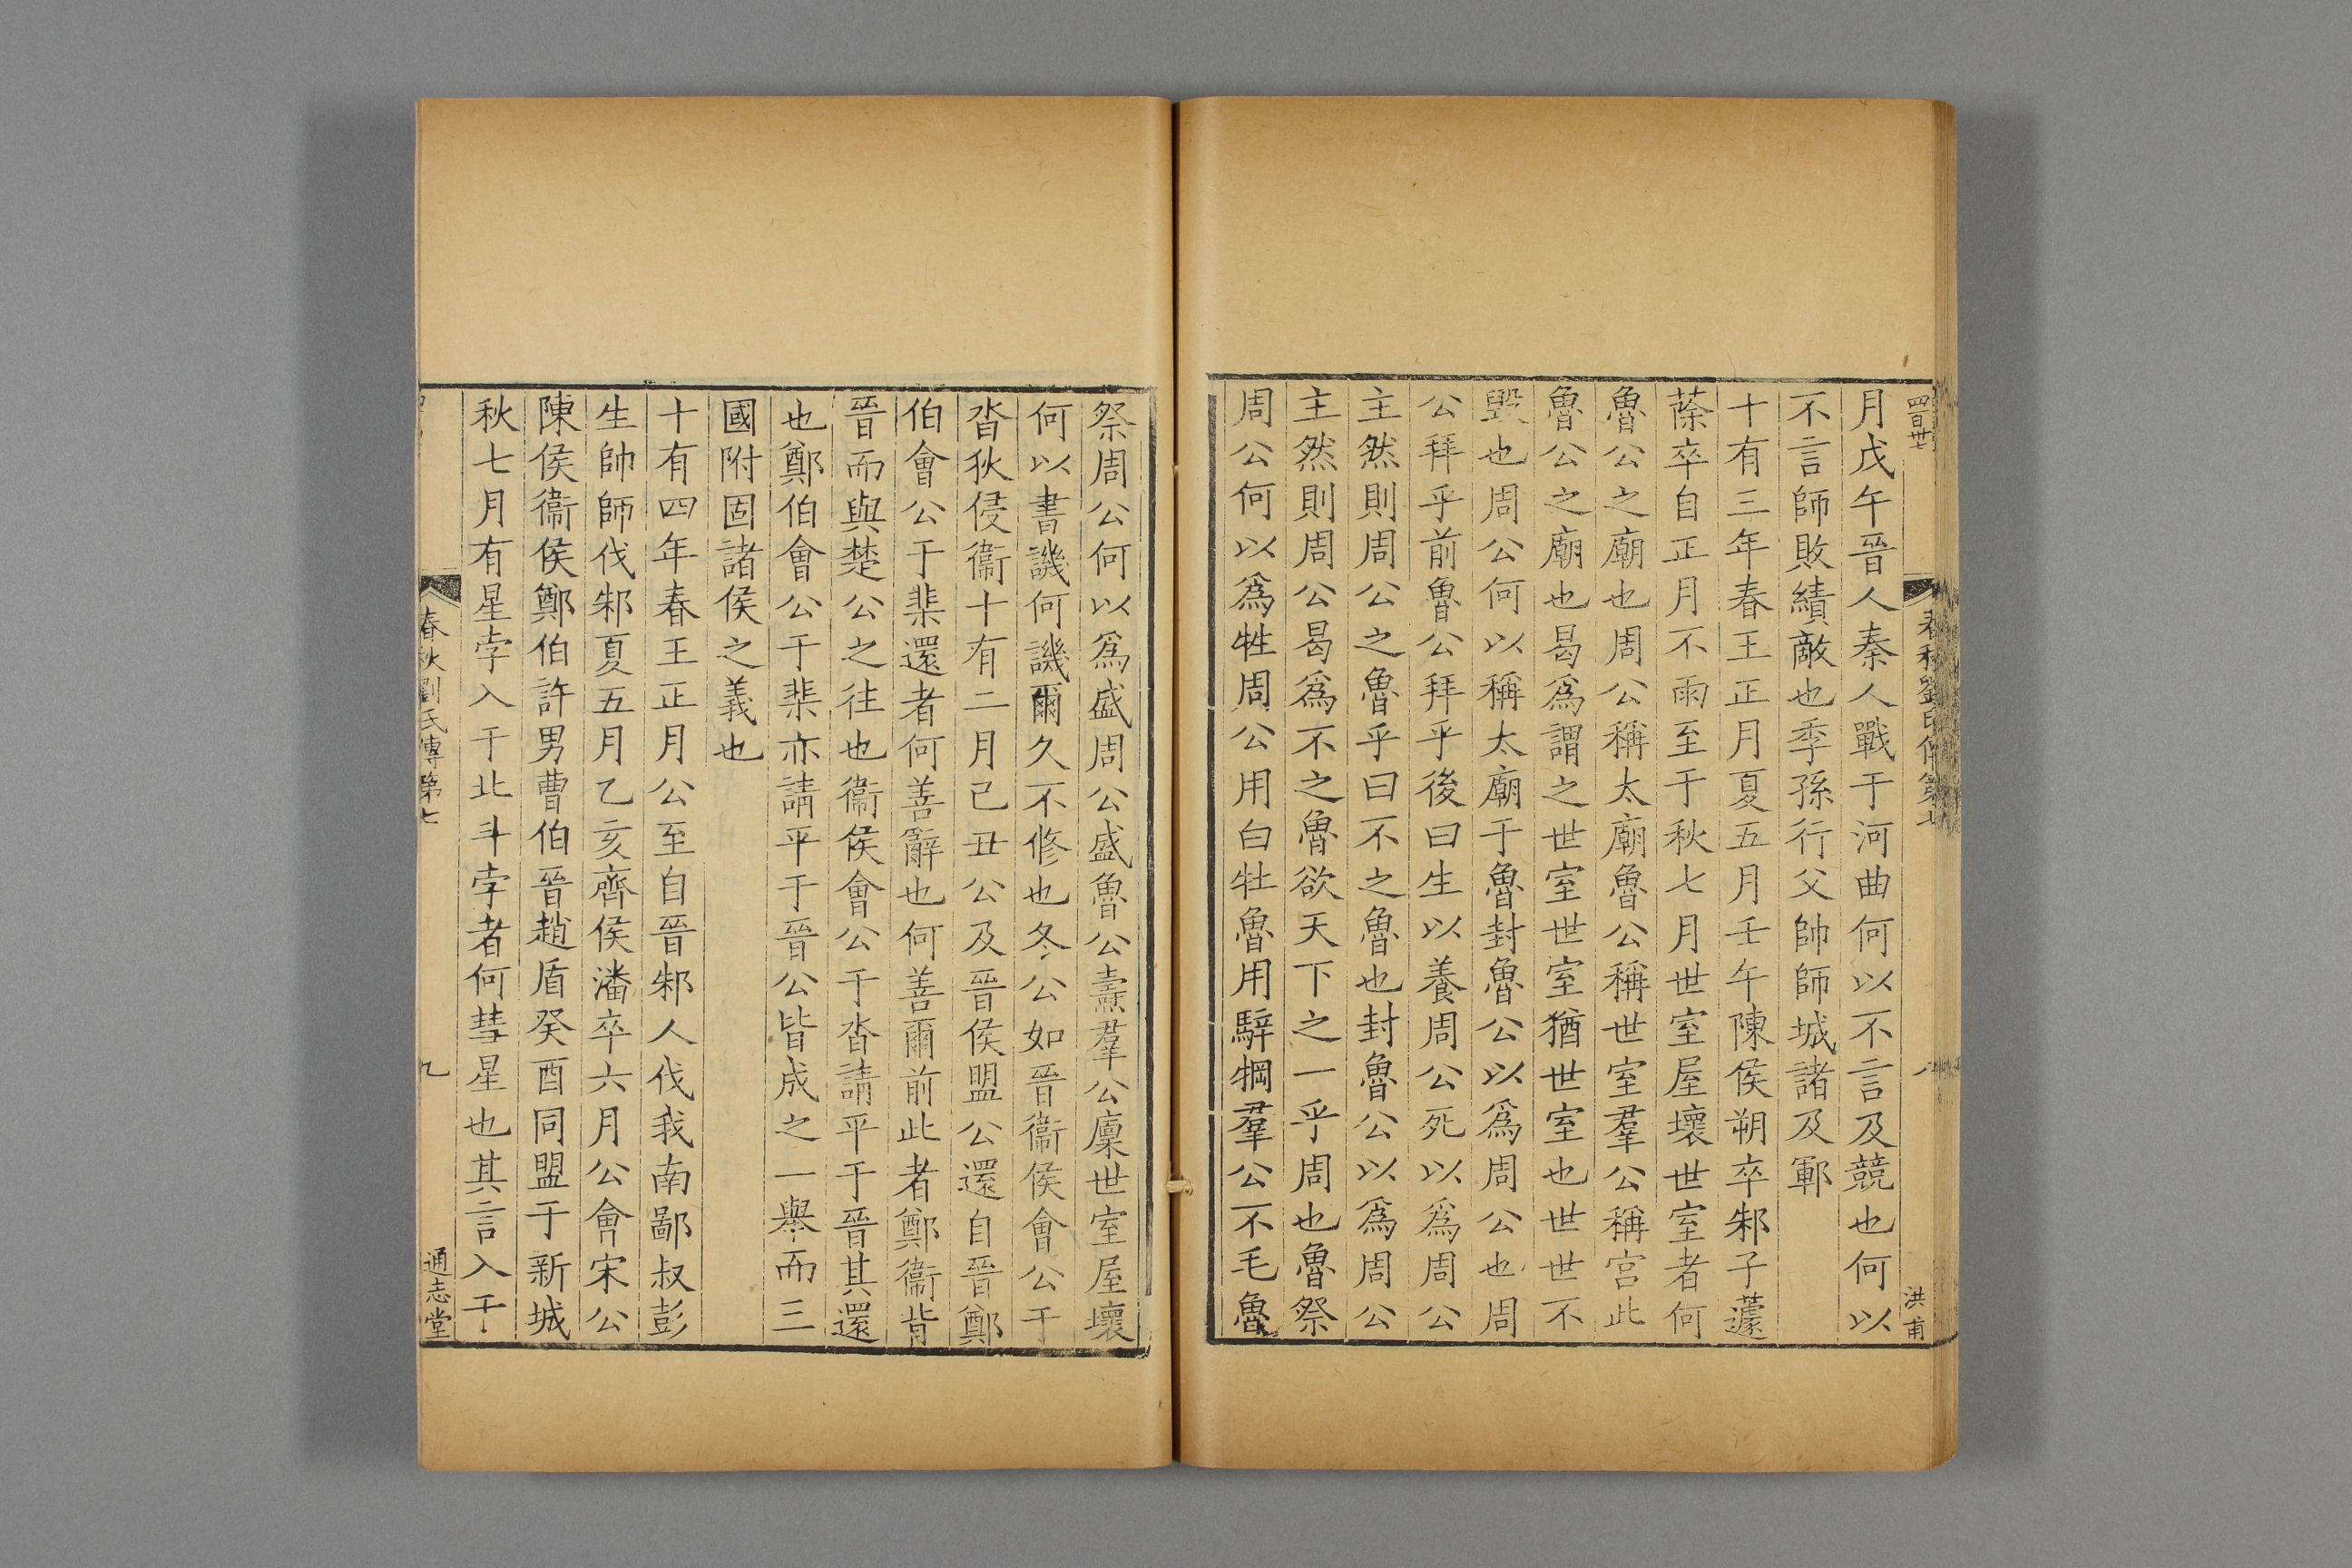 月戊午晉人秦人戰于河曲何以不言及競也何以
不言師敗績敵也季孫行父帥師城諸及鄆
十有三年春王正月夏五月壬午陳侯朔卒邾子蘧
蒢卒自正月不雨至于秋七月世室屋壞世室者何
魯公之廟也周公稱太廟魯公稱世室羣公稱宮此
魯公之廟也曷爲謂之世室世室猶世室也世世不
毀也周公何以稱太廟于魯封魯公以爲周公也周
公拜乎前魯公拜乎後曰生以養周公死以爲周公
主然則周公之魯乎曰不之魯也封魯公以爲周公
主然則周公曷爲不之魯欲天下之一乎周也魯祭
周公何以爲牲周公用白牡魯用騂犅羣公不毛魯
洪甫
祭周公何以爲盛周公盛魯公燾羣公廩世室屋壞
何以書譏何譏爾久不修也冬公如晉衞侯會公于
沓狄侵衞十有二月己丑公及晉侯盟公還自晉鄭
伯會公于棐還者何善辭也何善爾前此者鄭衞背
晉而與楚公之往也衞侯會公于沓請平于晉其還
也鄭伯會公于棐亦請平于晉公皆成之一舉而三
國附固諸侯之義也
十有四年春王正月公至自晉邾人伐我南鄙叔彭
生帥師伐邾夏五月乙亥齊侯潘卒六月公會宋公
陳侯衞侯鄭伯許男曹伯晉趙盾癸酉同盟于新城
秋七月有星孛入于北斗孛者何彗星也其言入于
春秋劉氏傳第七
九
通志堂